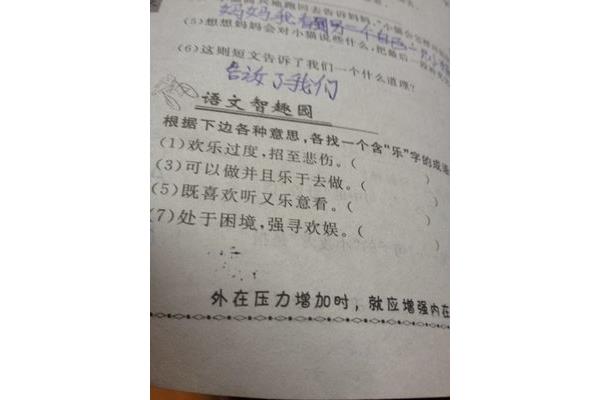 地跑回去告诉妈妈，"小猫会怎样
妈妈我看到另一个自己
(5)想想妈妈会对小猫说些什么，把最后一段补充
(6)这则短文告诉了我们一个什么道理？
告诉了我们
语文智趣园
根据下边各种意思，各找一个含"乐"字的成语
(1)欢乐过度，招至悲伤。(　　　)
(3)可以做并且乐于去做。(　　　)
(5)既喜欢听又乐意看。(　　　)
(7)处于困境，强寻欢娱。(　　　)
外在压力增加时，就应增强内在